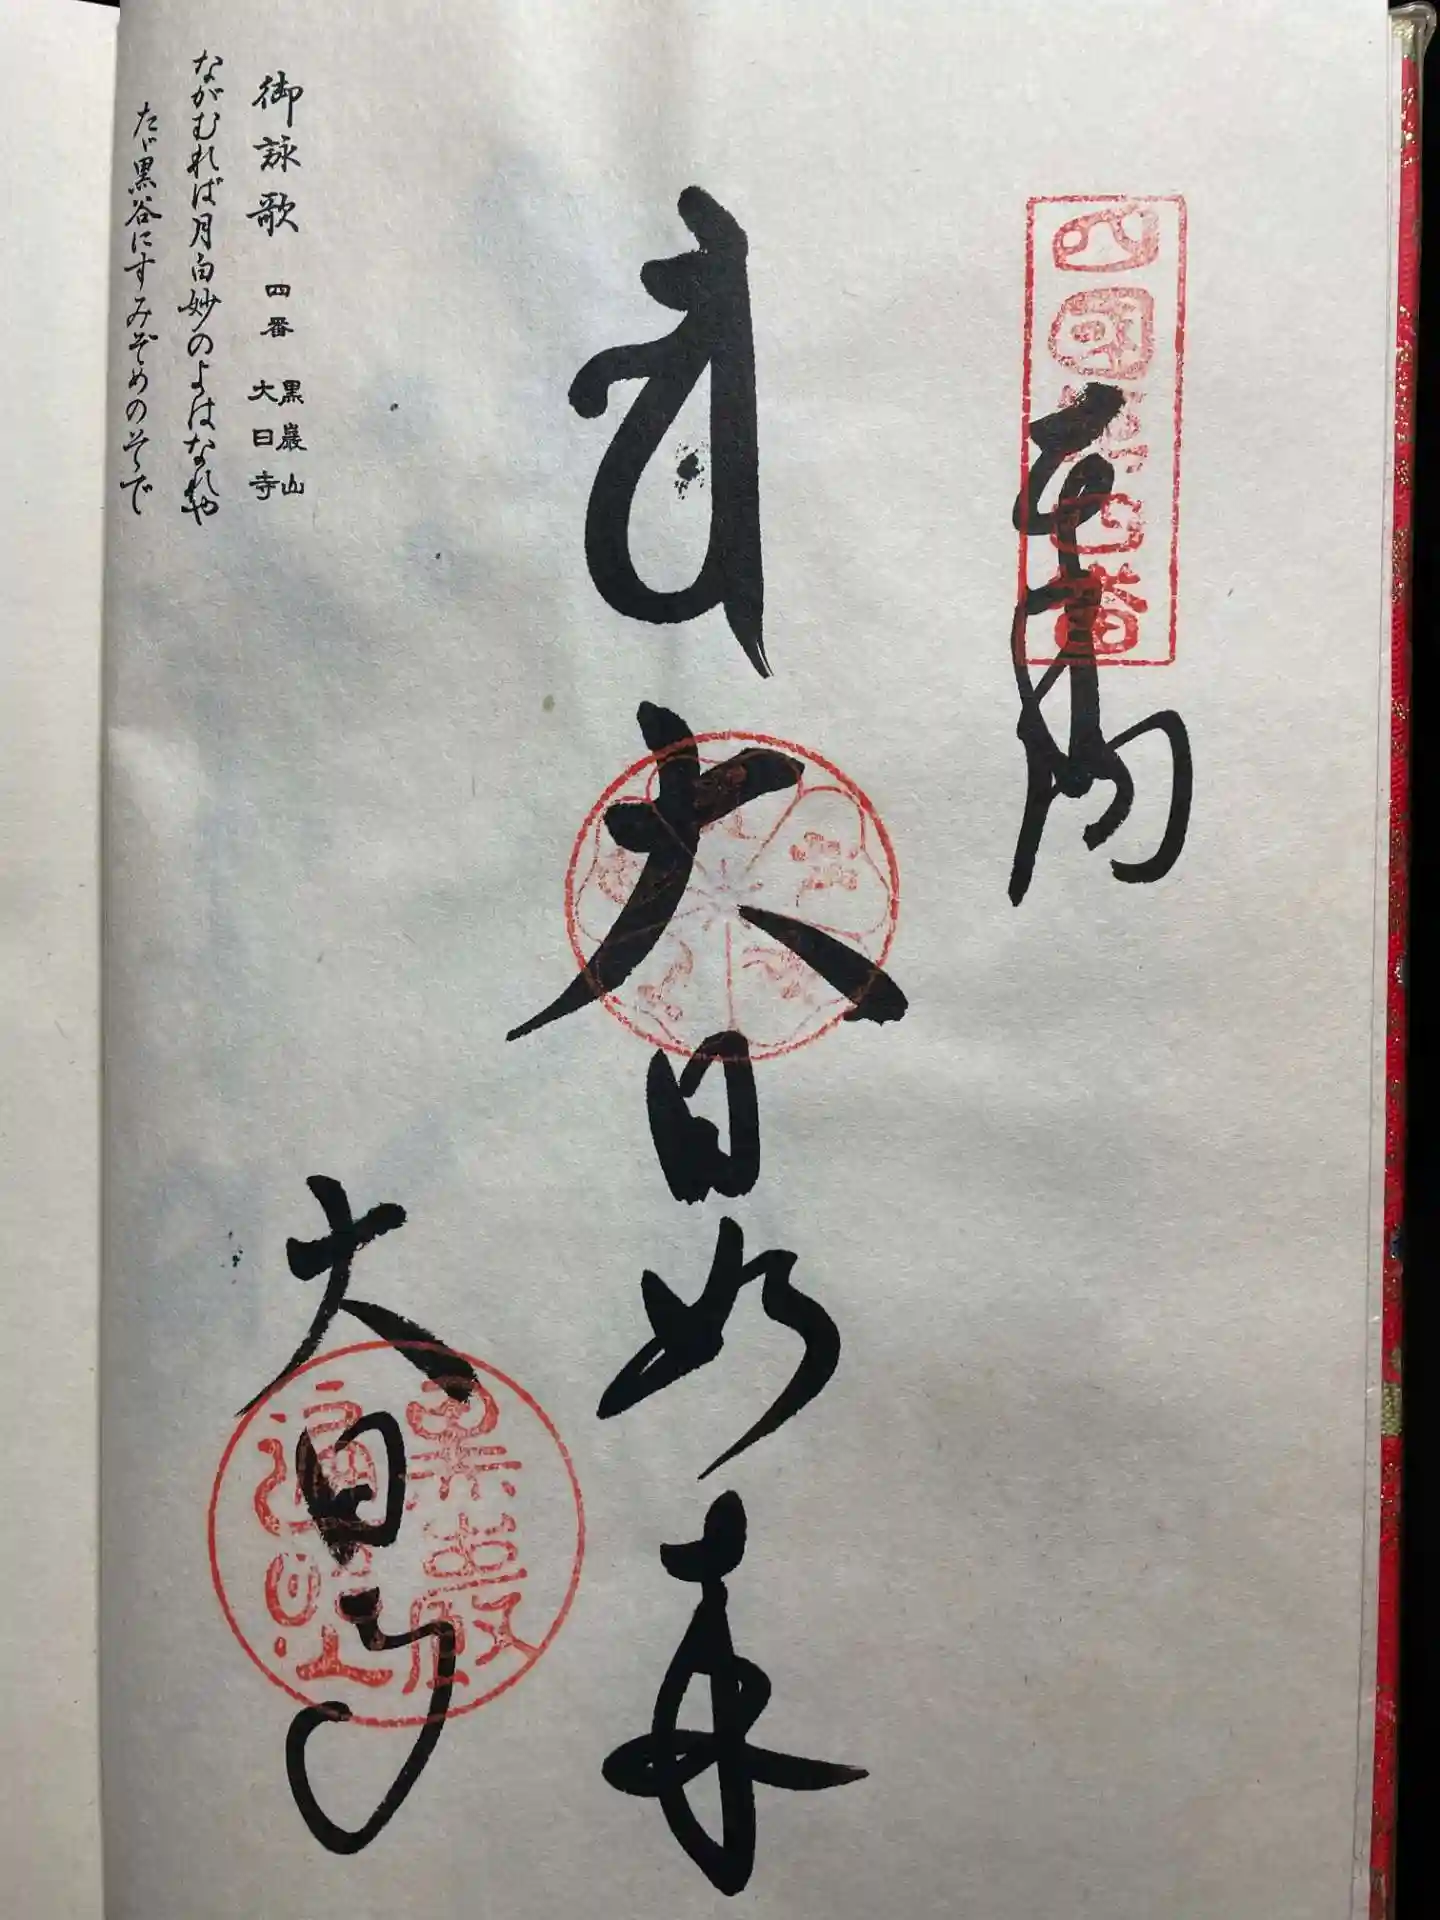 四國第四番
奉納
大日如来
大日寺
黒巖山
御詠歌 四番 黒巖山 大日寺
ながむれば月白妙のよはなれや
たゞ黒谷にすみぞめのそで